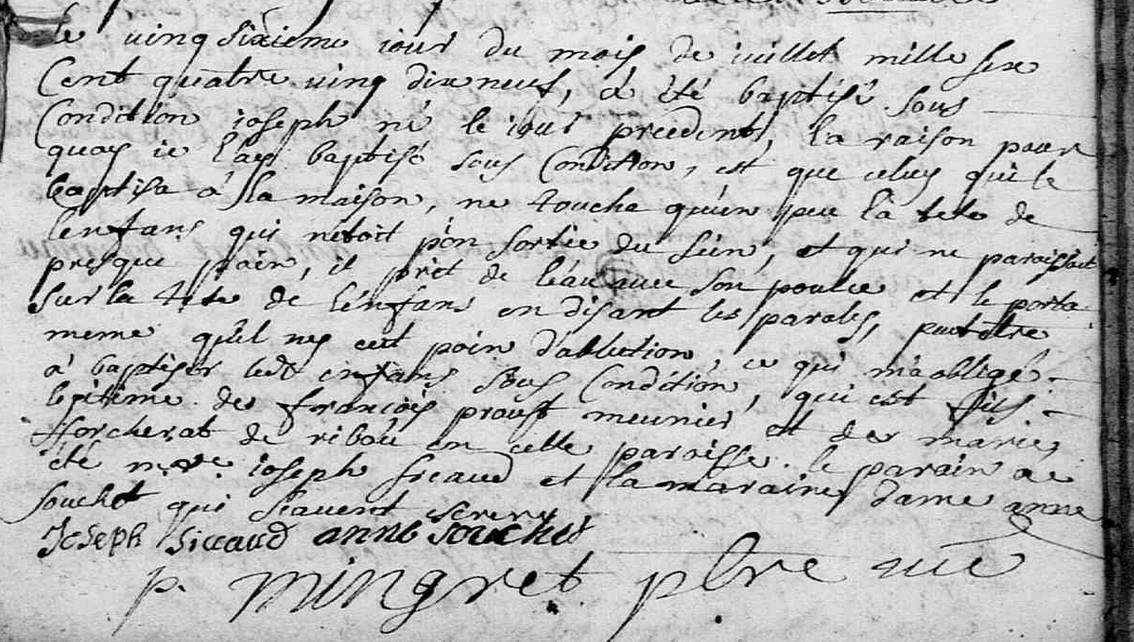 le vingsixieme iour du mois de iuillet mille six
Cent quatre ving dix neuf, a été baptisé sous
Condition ioseph né le iour precedent, la raison pour
quoy ie lay baptisé sous Condition, est que celuy qui le
baptisa à la maison, ne toucha qu'un peu la tete de
lenfans qui netoit pôn sortie du sein, et qui ne paraissoit
presque poin, il prit de leau avec son poulce et le porta
sur la tete de lenfans en disant les paroles, peutetre
meme quil ny eut poin dablution, ce qui m'a obligé
à baptiser ledt enfans sous Condition, qui est fils
legitime des francois proust meunier et des marie
forcherat de ribou en cette paroisse. le parain a
été ioseph sicaud et la maraine dame anne
souchet qui scavent
Joseph Siccaud anne souchet
p. mingret pbre